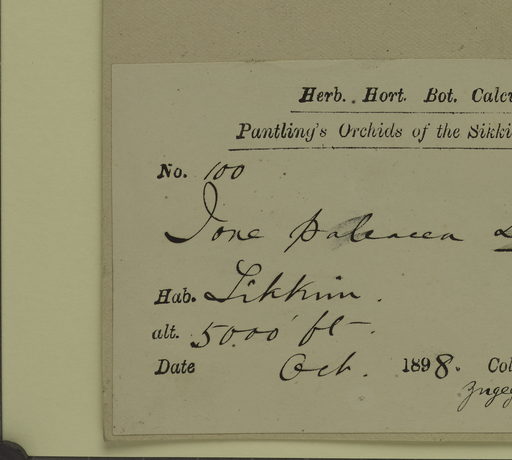 Herb. Hort. Bot. Calcu
Pantling's Orchids of the Sikki
No. 100
Ione paleacea
Hab. Sikkim.
alt. 5000' ft.
Date Oct. 1898. Col